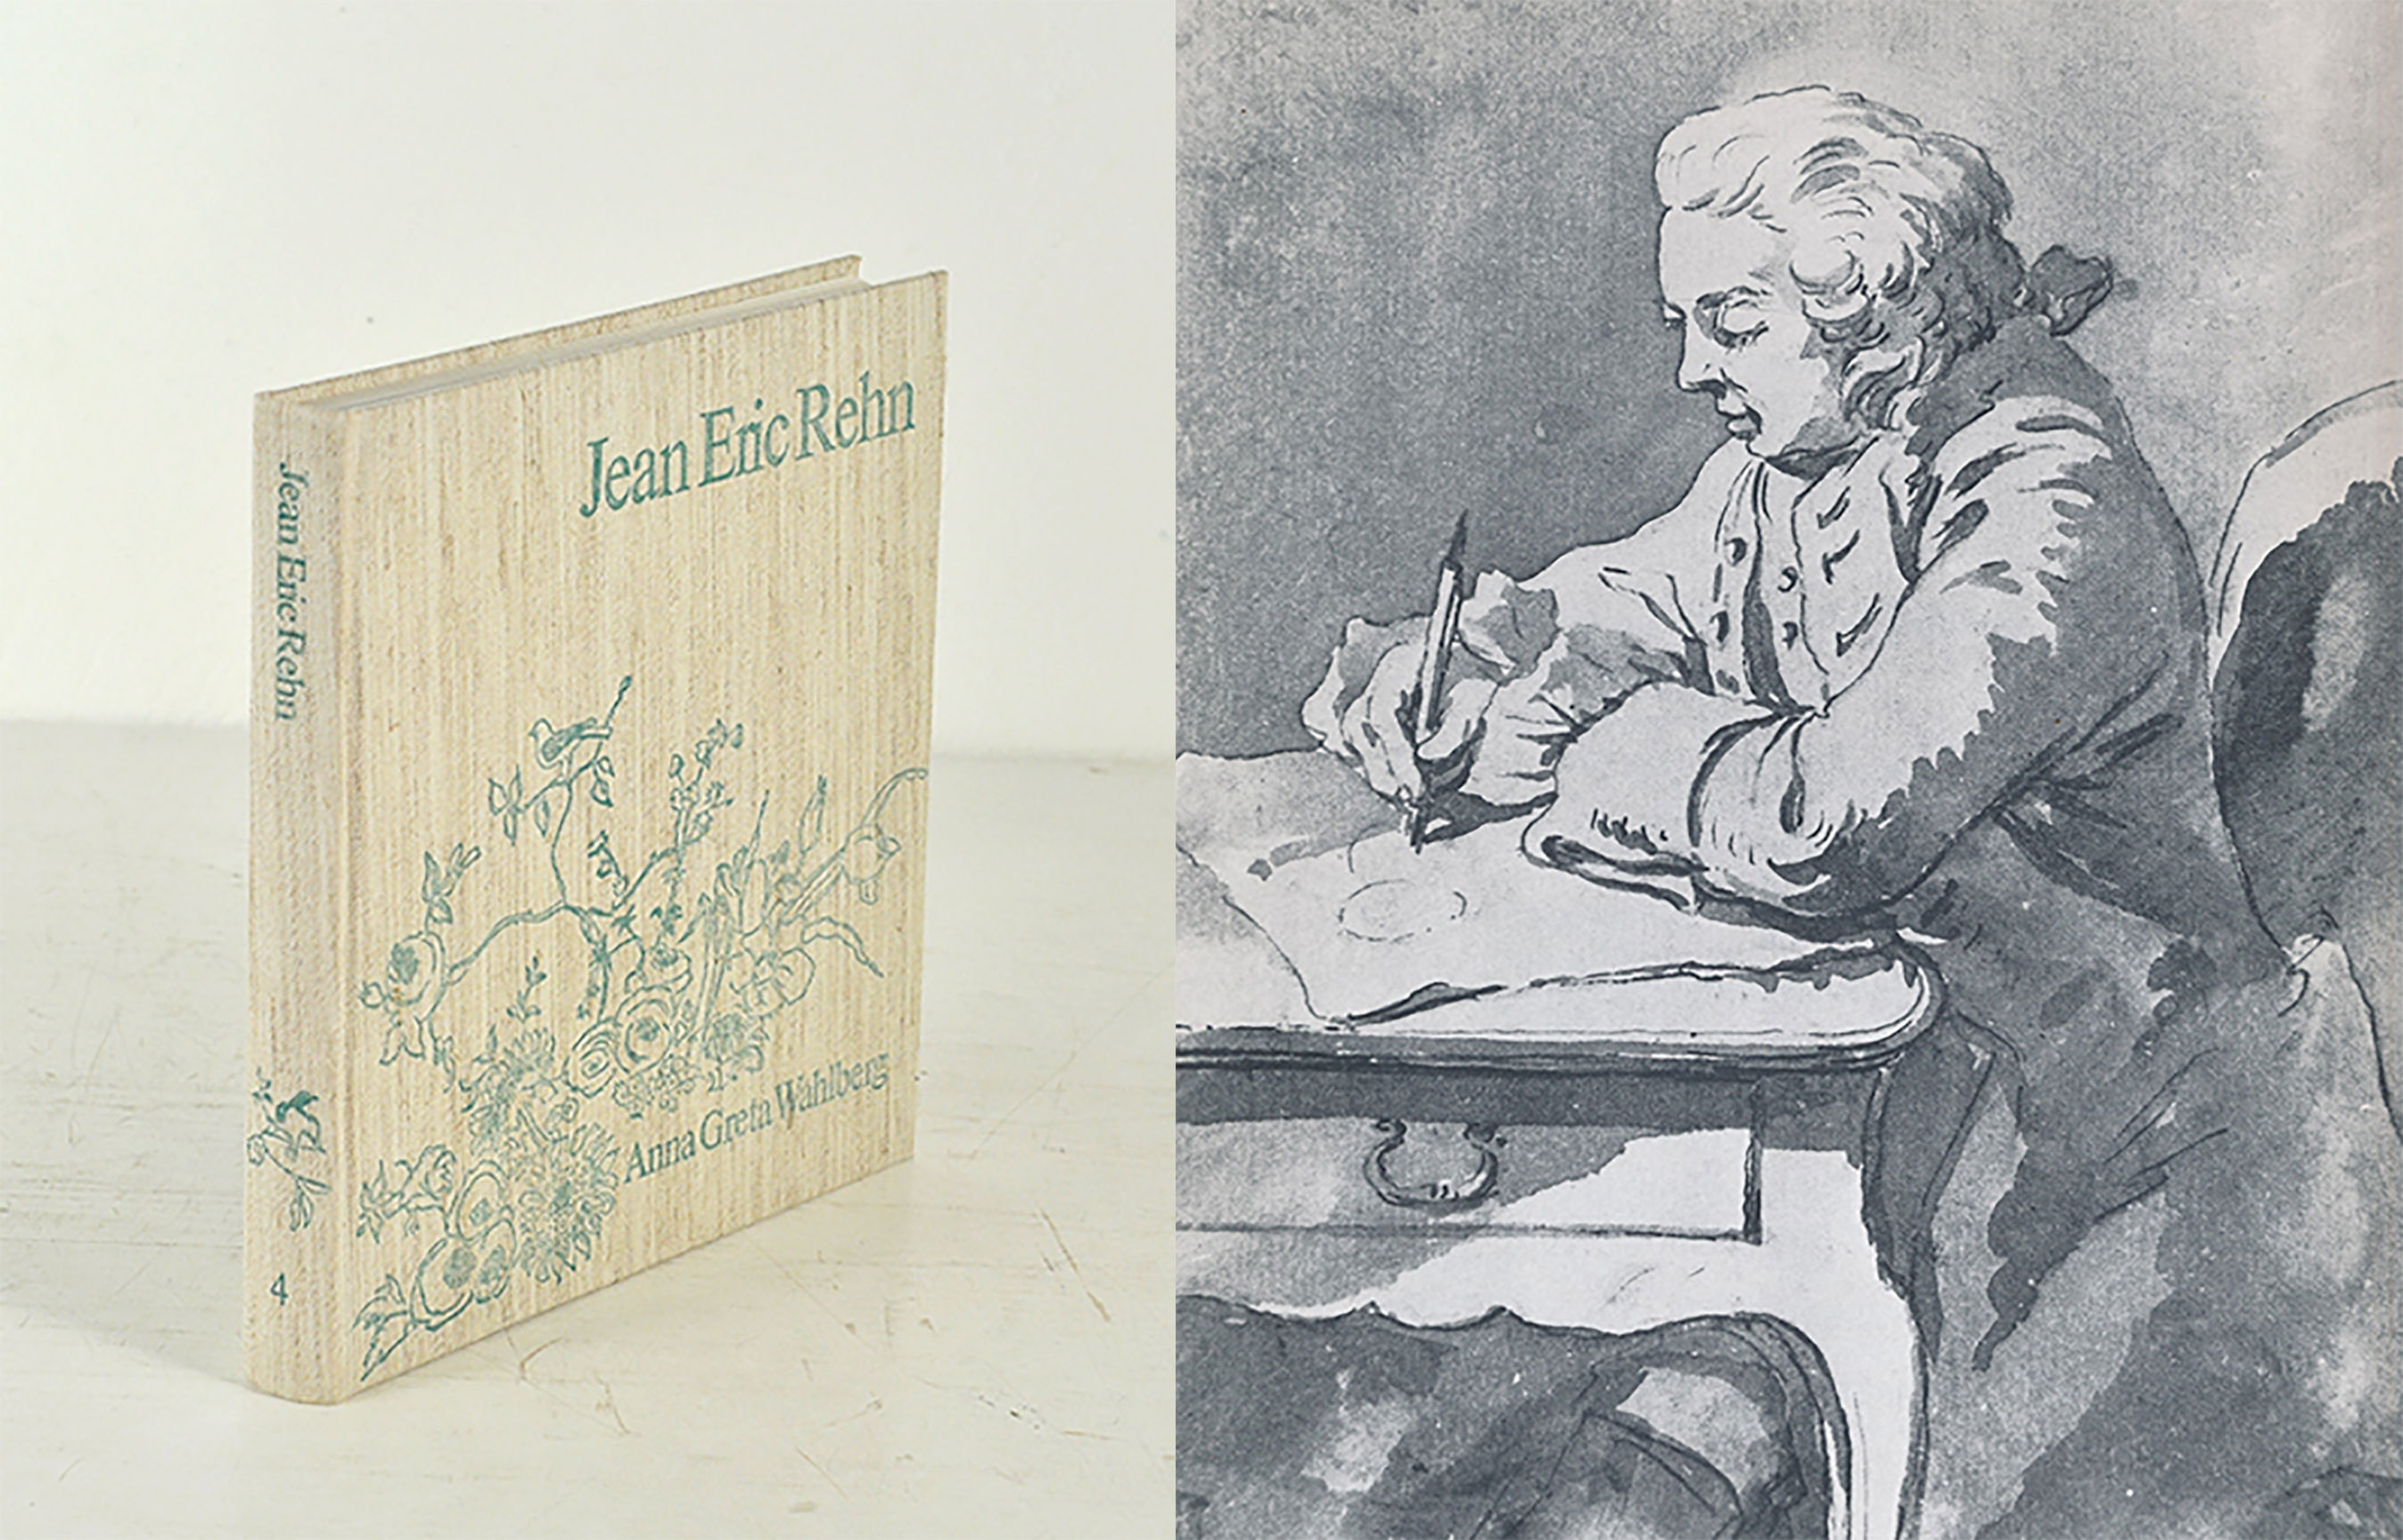 Jean Eric Rehn
Anna Greta Wahlberg
Jean Eric Rehn
4